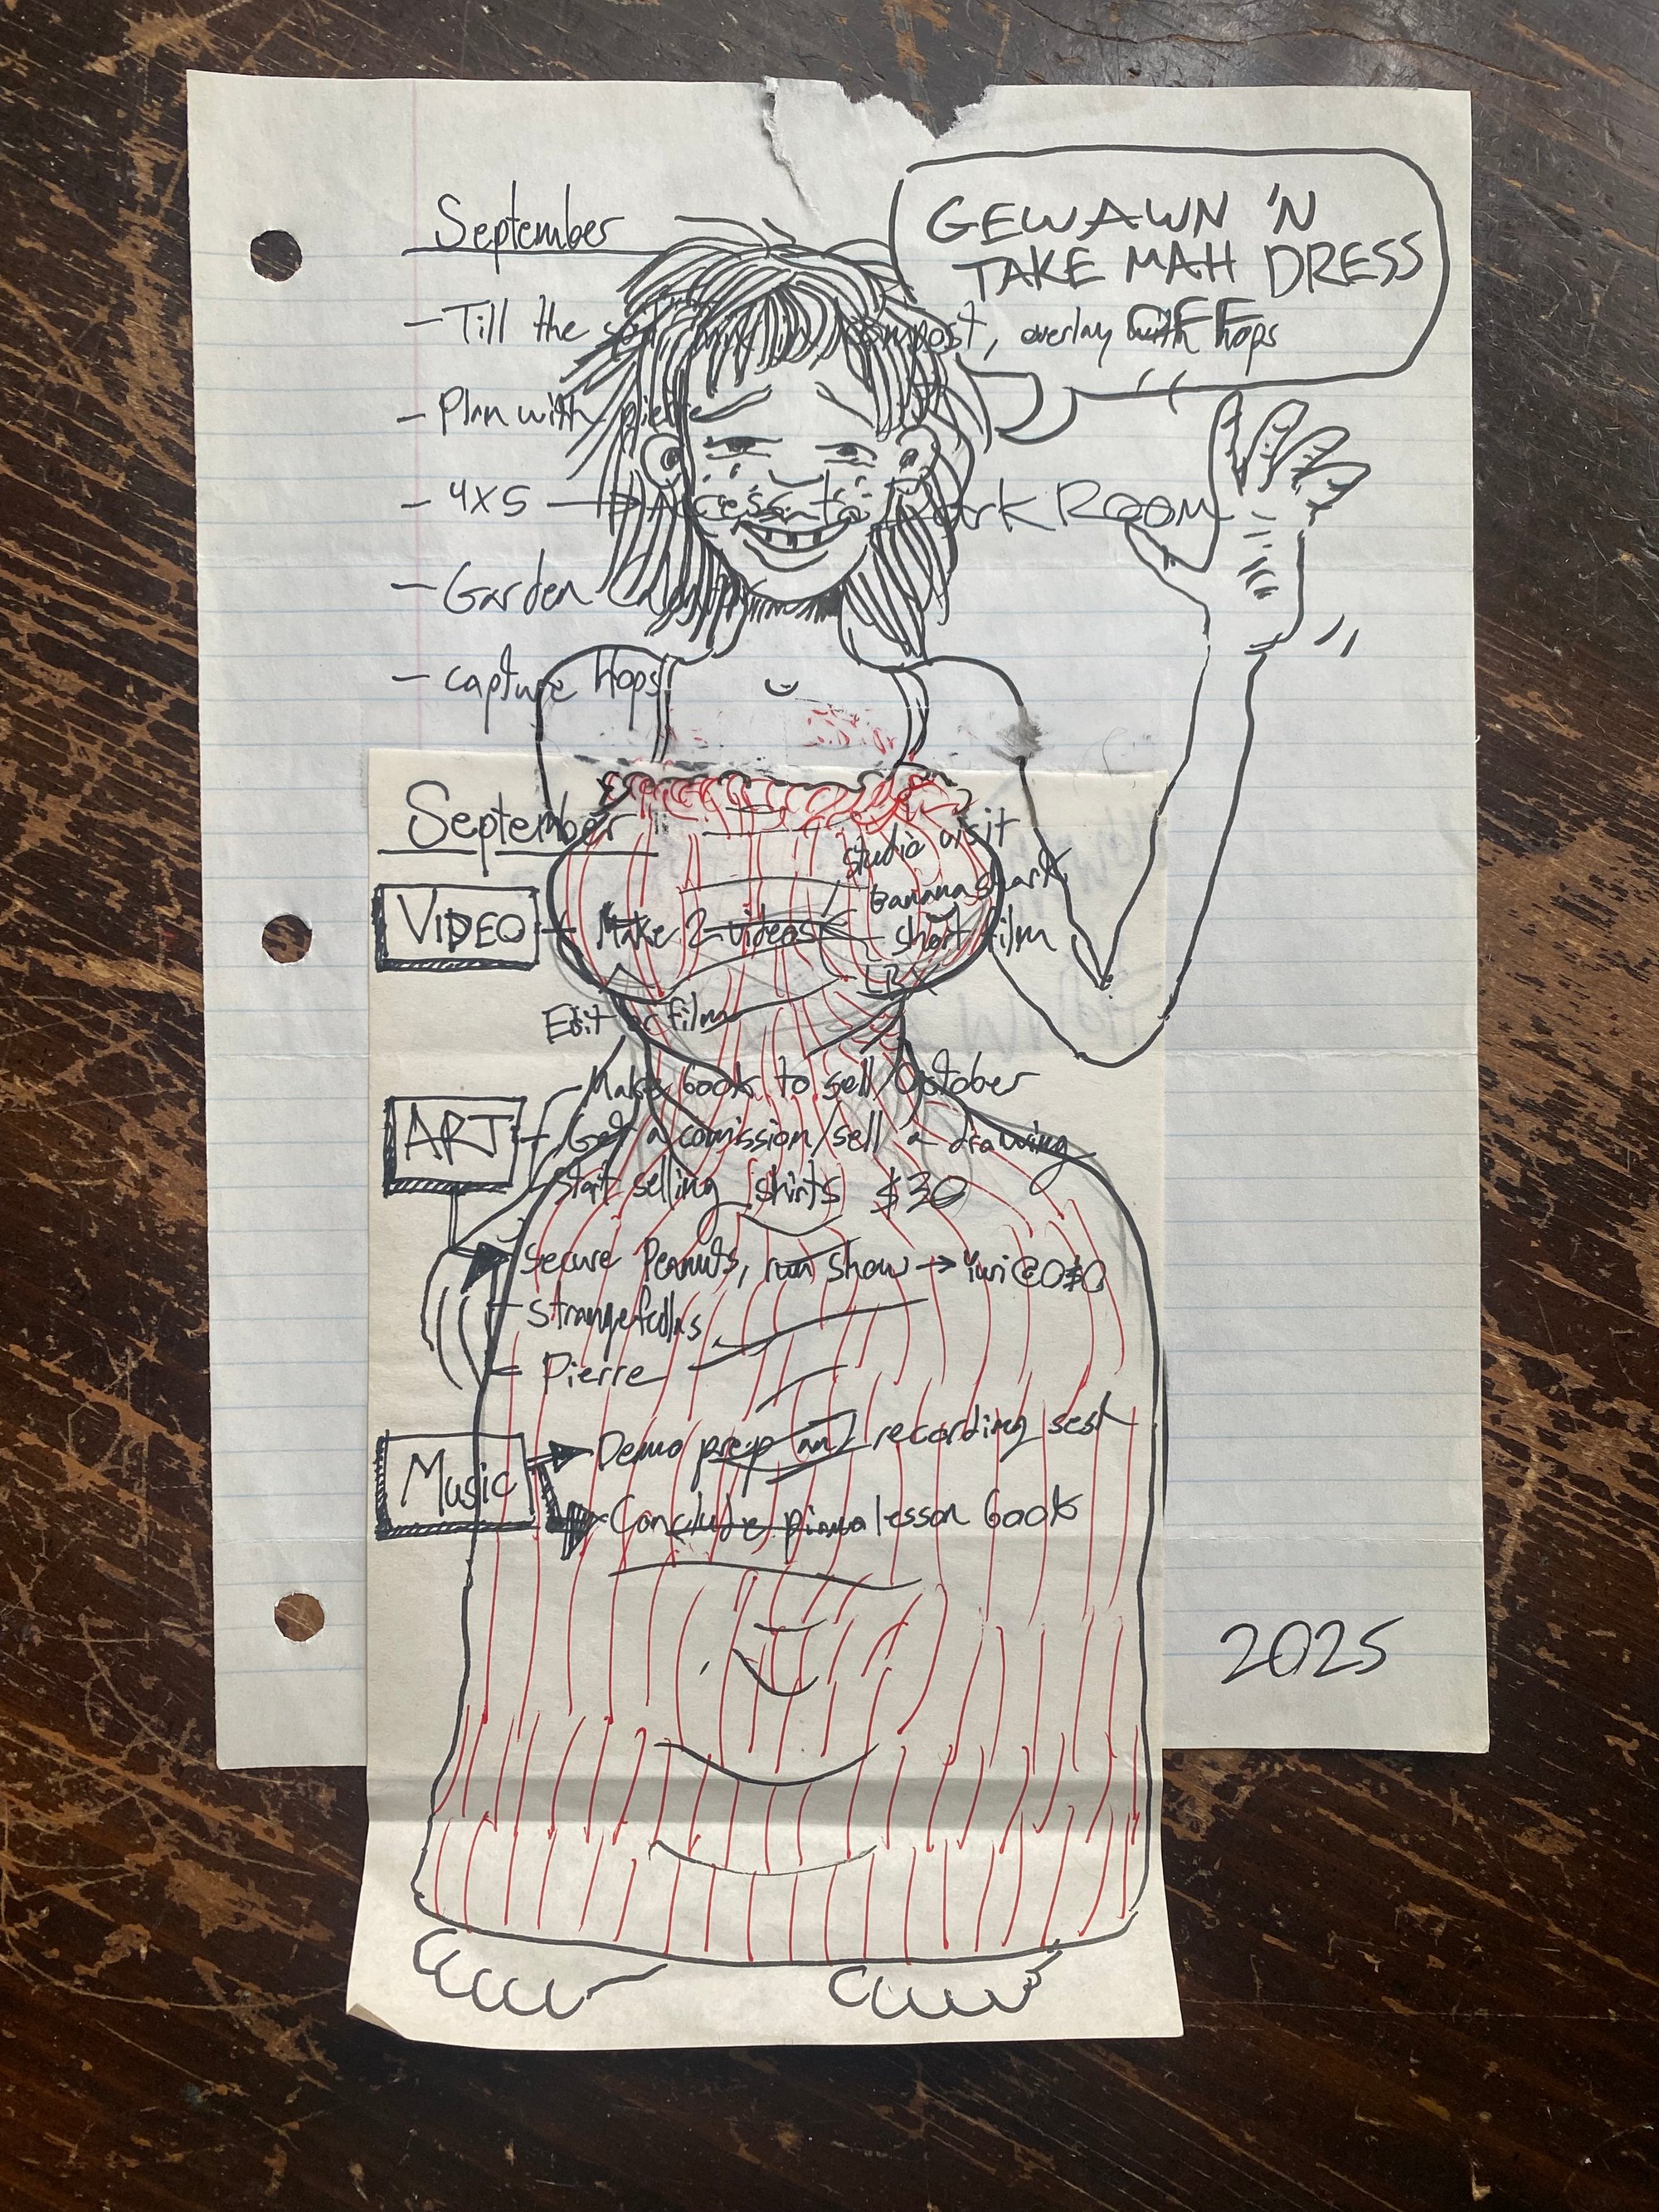 September
GEWAWN 'N
TAKE MAH DRESS
OFF
- Till the soil, compost, overlay with hops
- Plan with pierre
- 4x5 → Access to Dark Room
- Garden
- capture hops
September
VIDEO
Make 2 videos
studio visit
Banana shark
short film
Edit or film
ART
- Make book to sell October
- Get a comission/sell a drawing
Start selling shirts $30
Secure Peanuts, run show →
- Strangefellas
- Pierre
Music
Demo prep and recording sesh
Conclude piano lesson book
2025